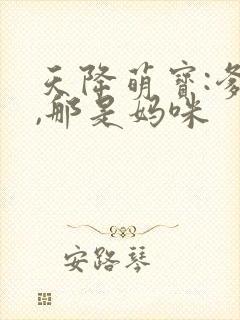 天降萌宝:爹
,那是妈咪
安路琴